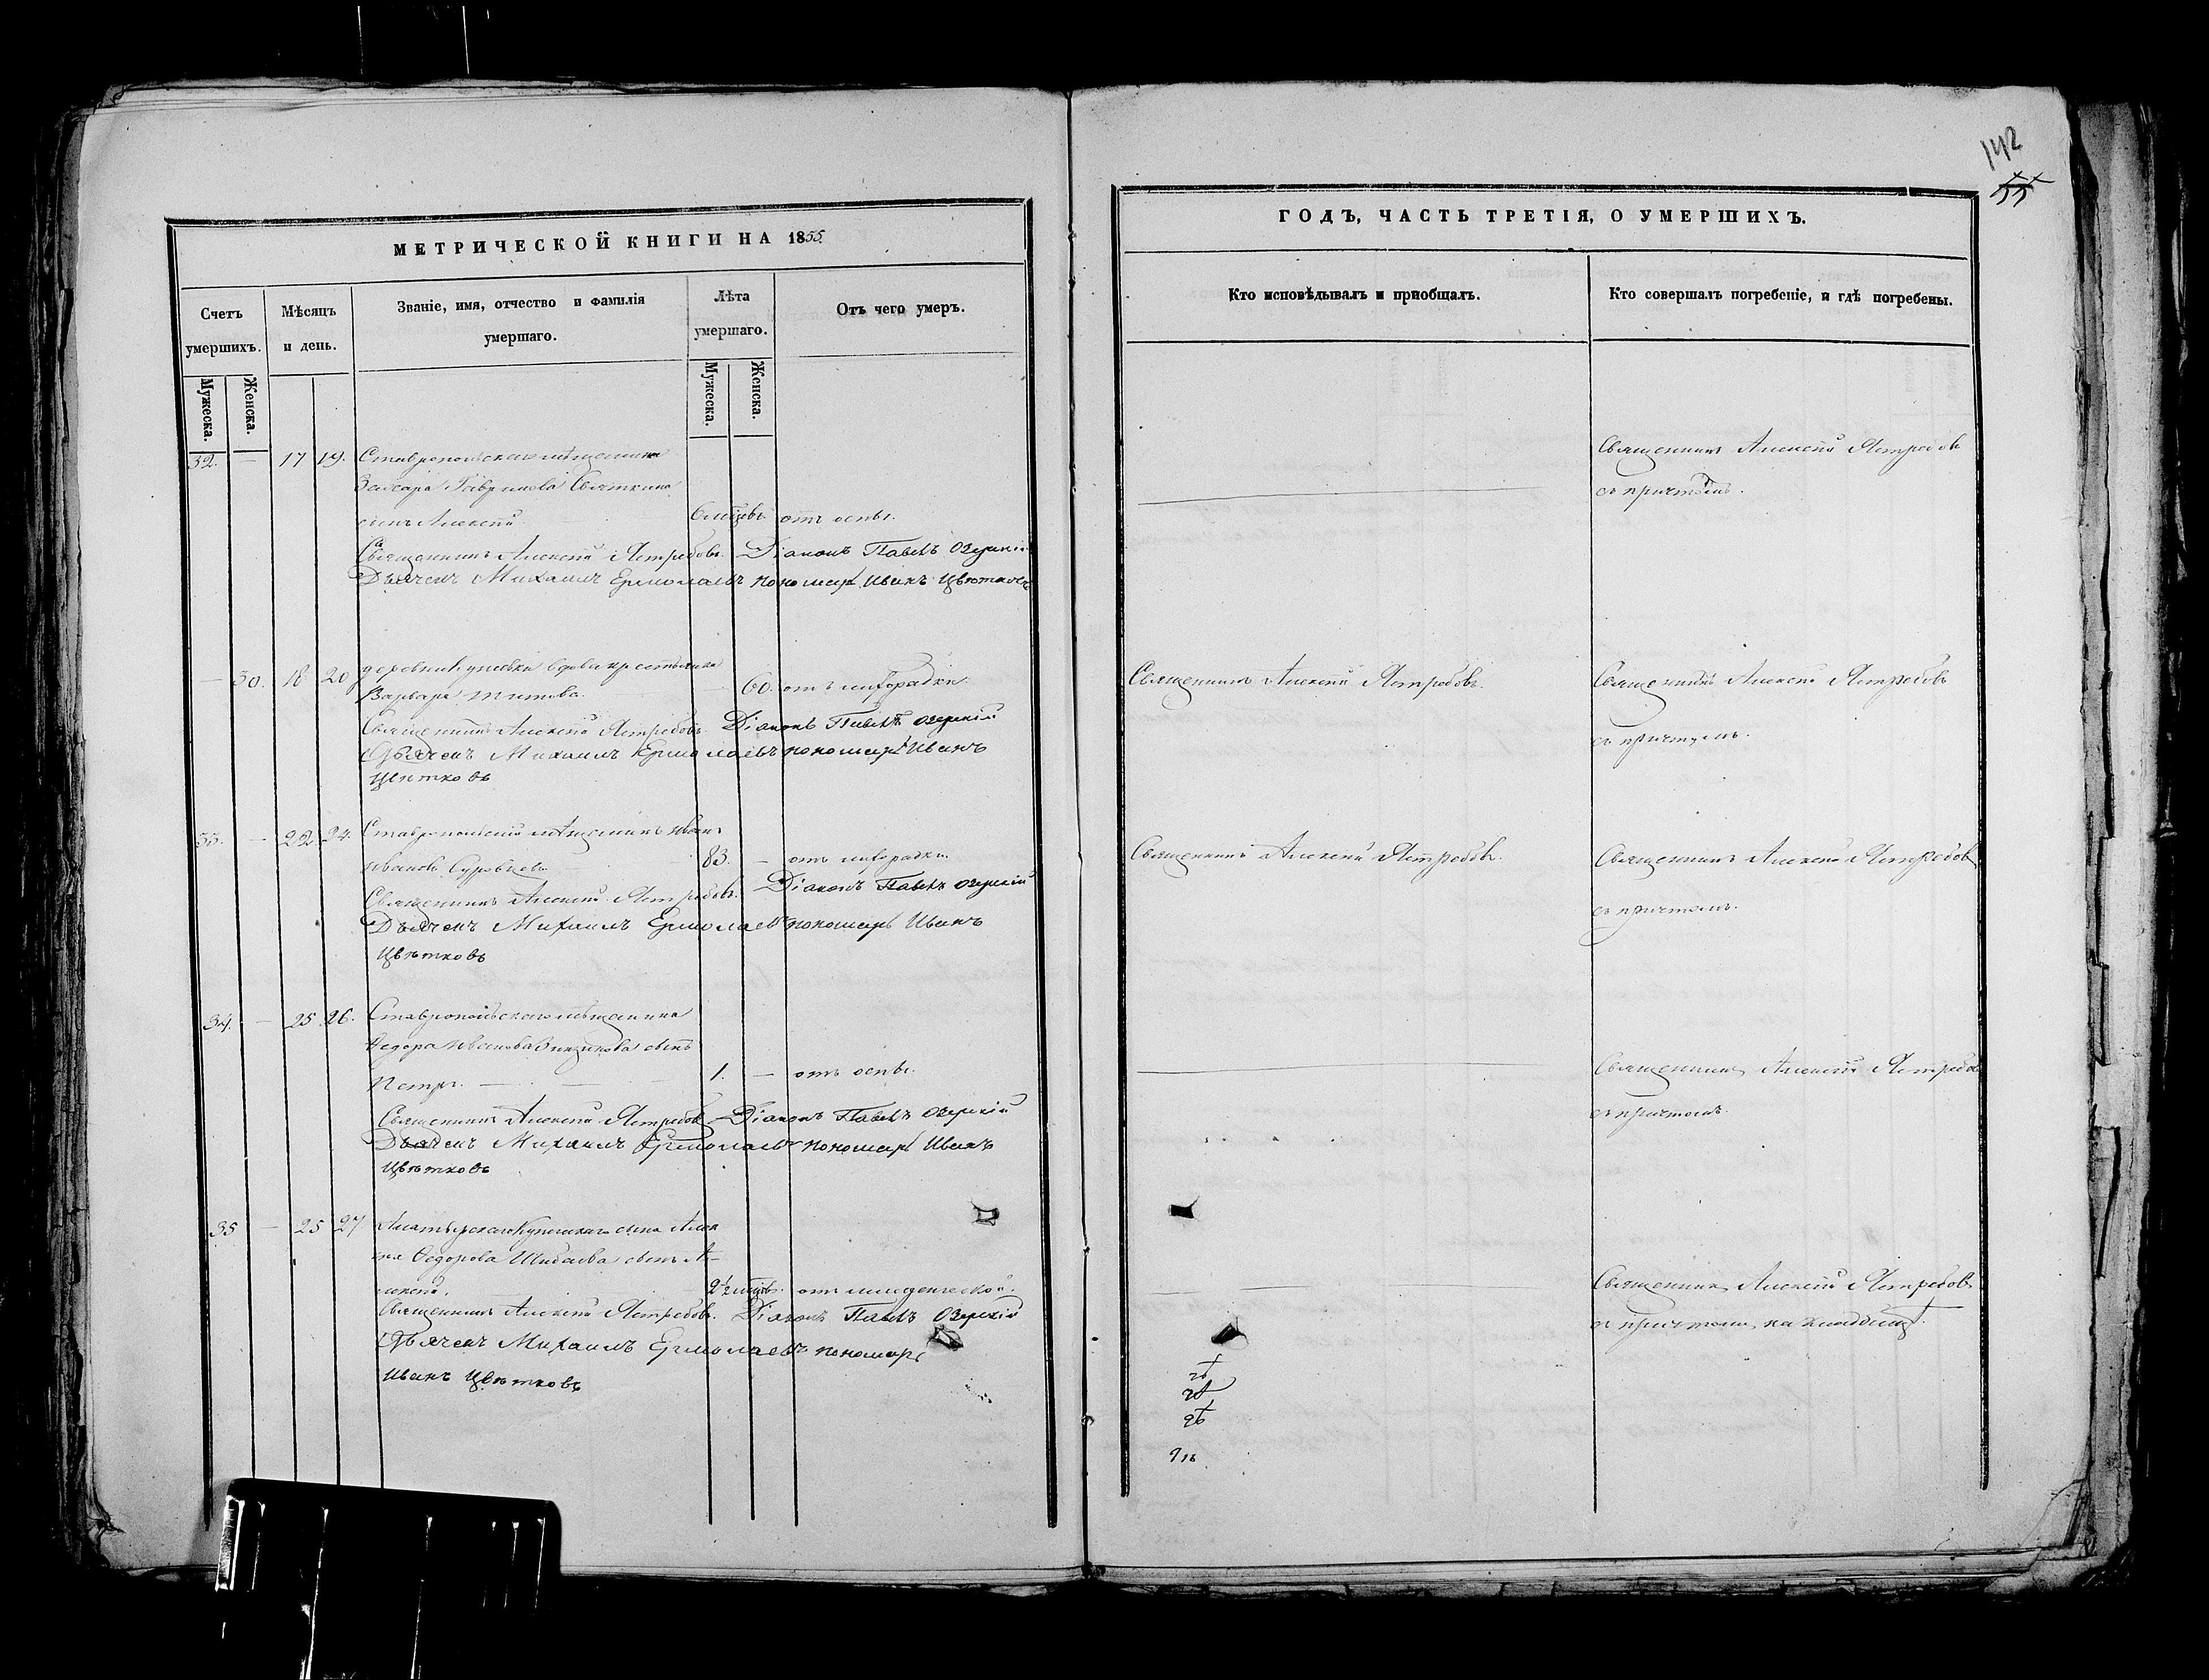 142
55
МЕТРИЧЕСКОЙ КНИГИ НА 1855
Счетъ умершихъ.
Мѣсяцъ и день.
Званіе, имя, отчество и фамилія умершаго.
Лѣта умершаго.
Отъ чего умеръ.
Мужеска.
Женска.
Мужеска.
Женска.
32. — 17 19. Ставропольскаго мѣщанина
Захара Гаврилова Святкина
сынъ Алексѣй 6 мѣцовъ отъ оспы.
Священникъ Алексѣй Ястребовъ. Діаконъ Павелъ Озерскій
Дьячекъ Михаилъ Ермолаевъ пономарь Иванъ Цвѣтковъ
— 30. 18 20 деревни вдова крестьянка
Варвара Титова 60. отъ лихорадки.
Священникъ Алексѣй Ястребовъ Діаконъ Павелъ Озерскій
Дьячекъ Михаилъ Ермолаевъ пономарь Иванъ
Цвѣтковъ
33. — 22 24. Ставропольскій мѣщанинъ Иванъ
Ивановъ Суровцевъ 83. — отъ лихорадки.
Священникъ Алексѣй Ястребовъ. Діаконъ Павелъ Озерскій
Дьячекъ Михаилъ Ермолаевъ пономарь Иванъ
Цвѣтковъ
34. — 25 26. Ставропольскаго мѣщанина
Ѳедора Иванова сынъ
Петръ. — 1. — отъ оспы.
Священникъ Алексѣй Ястребовъ Діаконъ Павелъ Озерскій
Дьячекъ Михаилъ Ермолаевъ пономарь Иванъ
Цвѣтковъ
35 — 25 27 Алатырскаго Купеческаго сына Алек
Ѳедорова Шибаева сынъ А-
лексѣй. 2½ мѣцовъ. отъ младенческой.
Священникъ Алексѣй Ястребовъ. Діаконъ Павелъ Озерскій
Дьячекъ Михаилъ Ермолаевъ пономарь
Иванъ Цвѣтковъ
ГОДЪ, ЧАСТЬ ТРЕТІЯ, О УМЕРШИХЪ.
Кто исповѣдывалъ и пріобщалъ.
Кто совершалъ погребеніе, и гдѣ погребены.
Священникъ Алексѣй Ястребовъ
съ причтомъ.
Священникъ Алексѣй Ястребовъ. Священникъ Алексѣй Ястребовъ
съ причтомъ.
Священникъ Алексѣй Ястребовъ. Священникъ Алексѣй Ястребовъ
съ причтомъ.
Священникъ Алексѣй Ястребовъ
съ причтомъ.
Священникъ Алексѣй Ястребовъ
съ причтомъ на кладбищѣ.